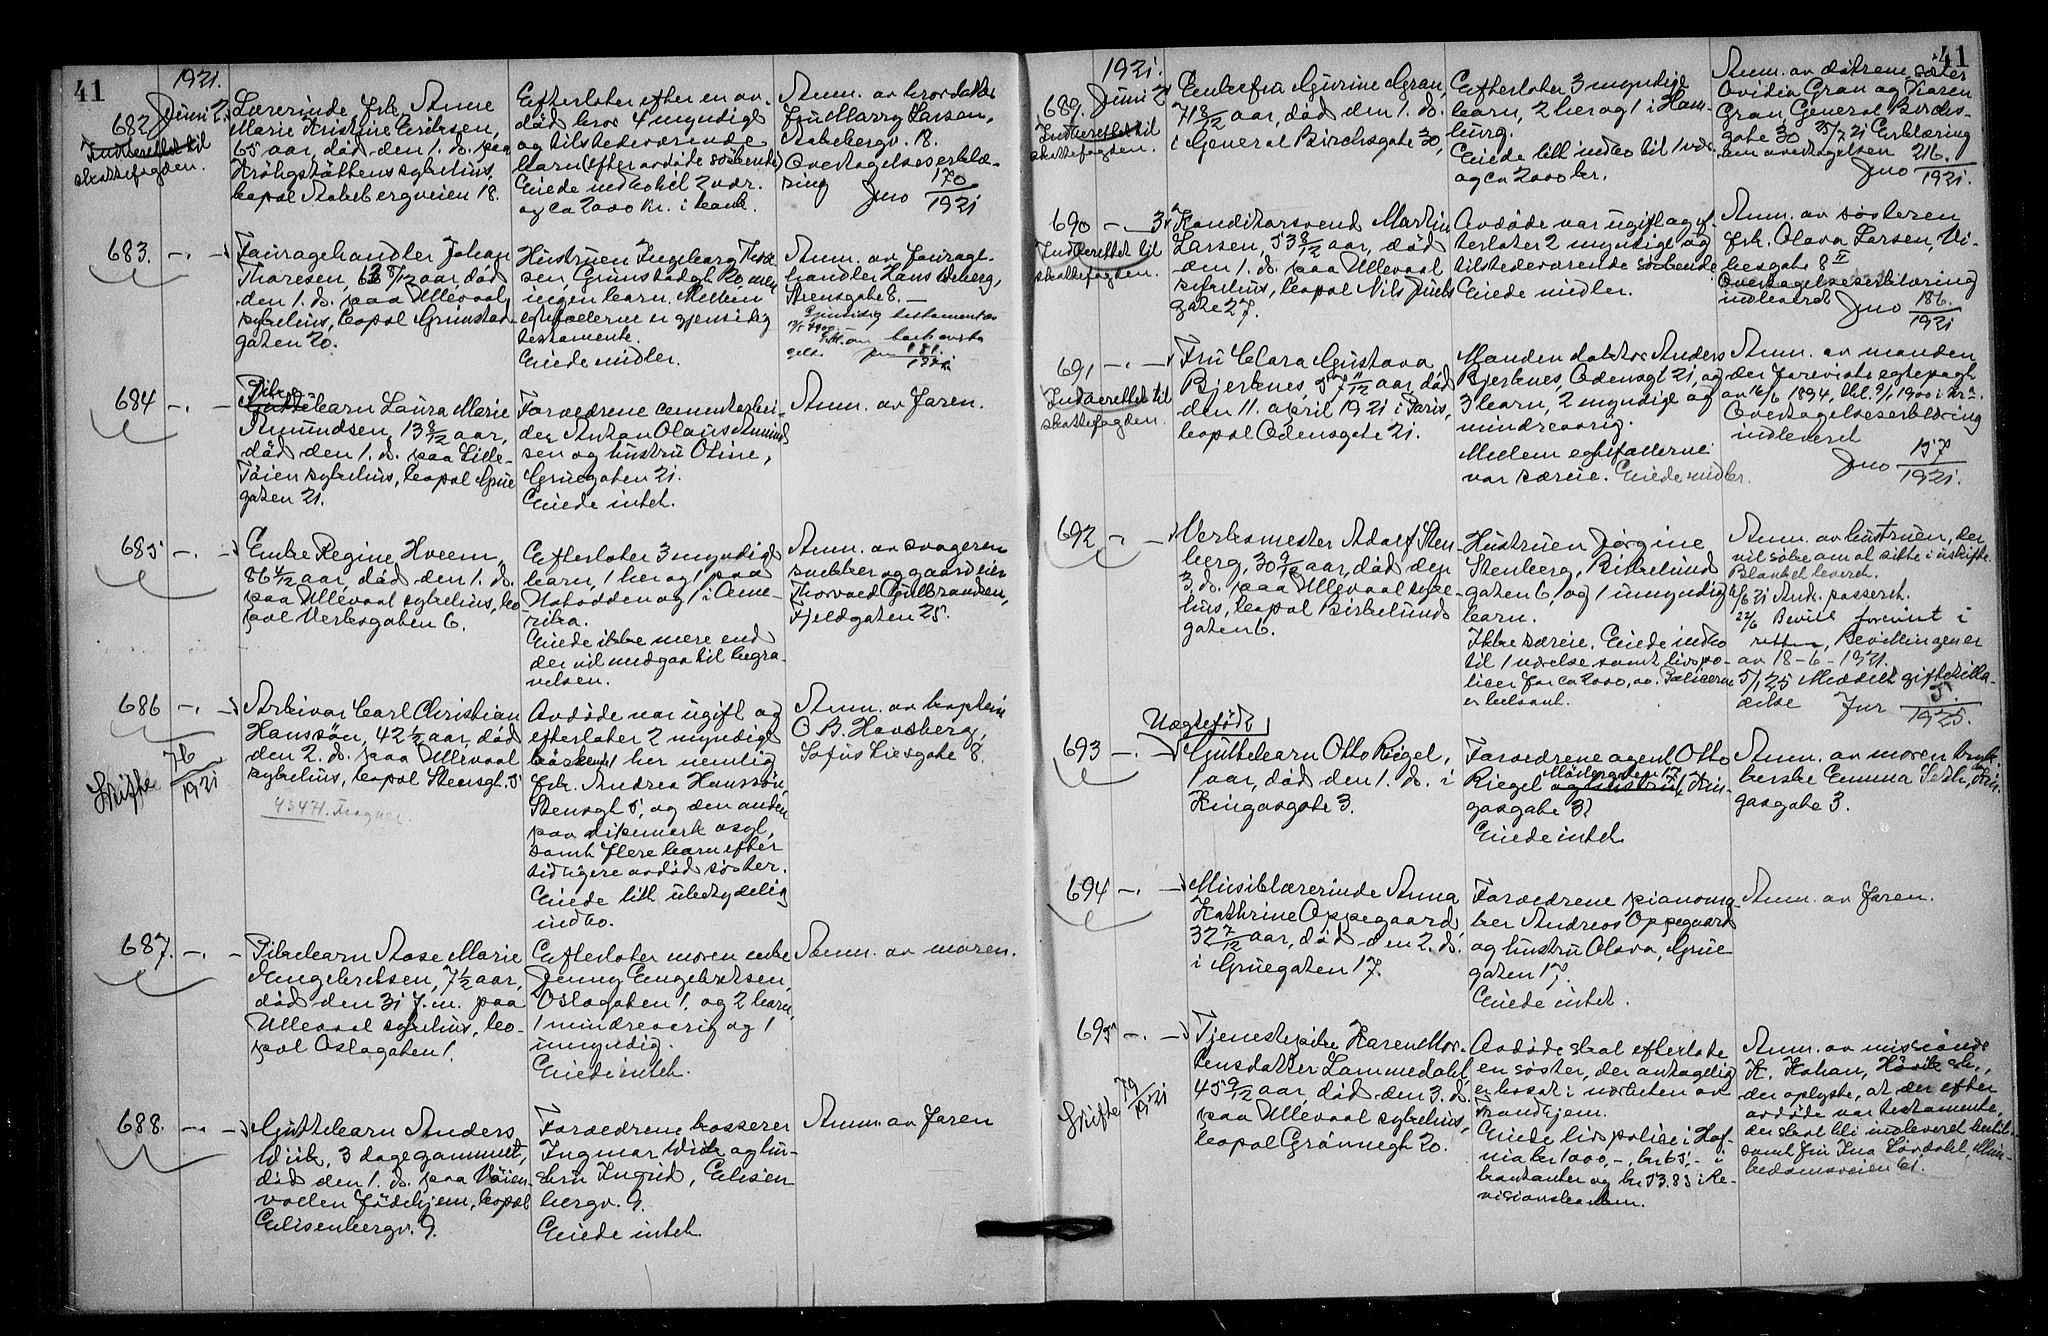 41
1921.
682. Juni 2.
Indberettet til
skattefogden.
Lærerinde frk. Anne
Marie Kristine Eriksen,
65 aar, død den 1. ds. paa
Krohgstøttens sykehus,
bopal Aakebergveien 18.
Efterlater efter en av-
død bror 4 myndige
og tilstedeværende
barn (efter avdøde søskende)
Eiede indbo til 2 vær.
og ca 2000 kr. i bank.
Anm. av brordatter
Fru Marry Larsen,
Aakebergv. 18.
Overtagelseserklæ-
ring Jno 170/1921
683. -.-
Fouragehandler Johan
Thoresen, 63 8/12 aar, død
den 1. ds. paa Ullevaal
sykehus, bopal Grimstad-
gaten 20.
Hustruen Ingeborg Thore-
sen, Grimstadgt. 20, men
ingen barn. Mellem
egtefællerne er gjensidig
testamente.
Eiede midler.
Anm. av fourage-
handler Hans
Steensgate 8. —
Gjensidig testamente
684 -.-
Pike-
Guttebarn Laura Marie
Amundsen, 13 8/12 aar,
død den 1. ds. paa Lille-
Tøien sykehus, bopal Grüe
gaten 21.
Foræeldrene cementarbei-
der Anton Olaus Amund
sen og hustru Otine,
Grüegaten 21.
Eiede intet.
Anm. av faren.
685 -.-
Enke Regine Hveem,
86 4/12 aar, død den 1. ds.
paa Ullevaal sykehus, bo
pal Verksgaten 6.
Efterlater 3 myndige
barn, 1 her og 1 paa
Notodden og 1 i Ame-
rika.
Eiede ikke mere end
der vil medgaa til begra-
velsen.
Anm. av svogeren
snekker og gaardeier
Thorvald Gulbrandsen,
Fjeldgaten 25.
686 -.-
Skifte 76/1921
Arkivar Carl Christian
Hanssøn, 42 1/2 aar, død
den 2. ds. paa Ullevaal
sykehus, bopal Stensgt. 5
Avdøde var ugift og
efterlater 2 myndige
søskende, 1 her nemlig
frk. Andrea Hanssøn,
Stensgt 5, og den anden
paa Dikemark asyl,
samt flere barn efter
tidligere avdød søster.
Eiede litt ubetydelig
indbo.
Anm. av kaptein
O B. Hovsberg,
Sofus Liesgate 8.
687. -.-
Pikebarn Aase Marie
Engebretsen, 7 1/2 aar,
død den 31 f. m. paa
Ullevaal sykehus, bo-
pal Oslogaten 1.
Efterlater moren enke
Jenny Engebretsen,
Oslogaten 1. og 2 barn,
1 mindreaarig og 1
umyndig.
Eiede intet.
Anm. av moren.
688. -.-
Guttebarn Anders
Wiik, 3 dage gammel,
død den 1. ds. paa Vøien-
volden fødehjem, bopal
Elisenbergv. 9.
Foræeldrene kasserer
Ingmar Wiik og hu-
stru Ingrid, Elisen
bergv. 9.
Eiede intet.
Anm. av faren
41
1921.
689. Juni 2
Indberettet til
skattefogden.
Enkefru Gurine Gran,
71 8/12 aar, død den 1. ds.
i General Birchsgate 30,
Efterlater 3 myndige
barn, 2 her og 1 i Ham-
burg.
Eiede litt indbo til 1 vær.
og ca 2000 kr.
Anm. av døtrene, søster
Ovidia Gran og Karen
Gran, General Birchs-
gate 30. 25/7 21 Erklæring
om overtagelsen
Jno 216./1921.
690 -.- 3.
Indberettet til
skattefogden.
Konditorsvend Martin
Larsen, 53 8/12 aar, død
den 1. ds. paa Ullevaal
sykehus, bopal Nils Juels
gate 27.
Avdøde var ugift og ef-
terlater 2 myndige og
tilstedeværende søskende
Eiede midler.
Anm. av søsteren
frk. Olava Larsen, Vi-
besgate 8 II
Overtagelseserklæring
indleveret
Jno 186./1921
691 -.-
Indberettet til
skattefogden.
Fru Clara Gustava
Bjerknes, 57 11/12 aar, død
den 11. april 1921 i Paris,
bopal Odensgate 21.
Manden doktor Anders
Bjerknes, Odensgt 21, og
3 barn, 2 myndige og
mindreaarig.
Mellem egtefællerne
var særeie. Eiede midler.
Anm. av manden,
der foreviste egtepagt
av 16/6 1894, thl. 9/1 1900 i Kra.
Overtagelseserklæring
indleveret
Jno 157/1921.
692 -.-
Verksmester Adolf Sten-
berg, 30 9/12 aar, død den
3. ds. paa Ullevaal syke-
hus, bopal Birkelunds
gaten 6.
Hustruen Jørgine
Stenberg, Birkelund
gaten 6, og 1 umyndig
barn.
Ikke særeie. Eiede indbo
til 1 værelse samt livspo-
licer for ca 2000,00. Policerne
er belaant.
Anm. av hustruen, der
vil søke om at sitte i uskifte.
Blankett leveret.
6/6 21 And. passeret.
22/6 Bevill. forevist i
retten, Bevillingen er
av 18-6-1921.
5/1 25 Meddelt giftetilla-
delse Jnr 5/1925.
693 -.-
Uegtefødt
Guttebarn Otto Riegel,
1 aar, død den 1. ds. i
Kingosgate 3.
Foræeldrene agent Otto
Riegel Møllergaten 17
og hustru, Kin-
gosgate 3.
Eiede intet.
Anm. av moren
Emma Teth, Kin-
gosgate 3.
694 -.-
Musiklærerinde Anna
Kathrine Oppegaard,
32 7/12 aar, død den 2. ds.
i Grüegaten 17.
Foræeldrene pianoma-
ker Andreas Oppegaard
og hustru Olava, Grüe
gaten 17.
Eiede intet.
Anm. av faren.
695 -.-
Skifte 79/1921
Tjenestepike Karen Mor-
tensdatter Lammedahl,
45 9/12 aar, død den 3. ds.
paa Ullevaal sykehus,
bopal Grønnegt 20.
Avdøde skal efterlate
en søster, der antagelig
er bosat i nærheten av
Trondhjem.
Eiede livspolice i Haf-
nia kr 1000,-, kr 65,- i
kontanter og kr 53.83 i Re-
visionsbanken.
Anm. av missionær
K. Hohan, Høvik st.,
der oplyste, at der efter
avdøde var testamente,
der skal bli indleveret hertil
samt fru Ina Lørdahl, Mun-
kedamsveien 61.